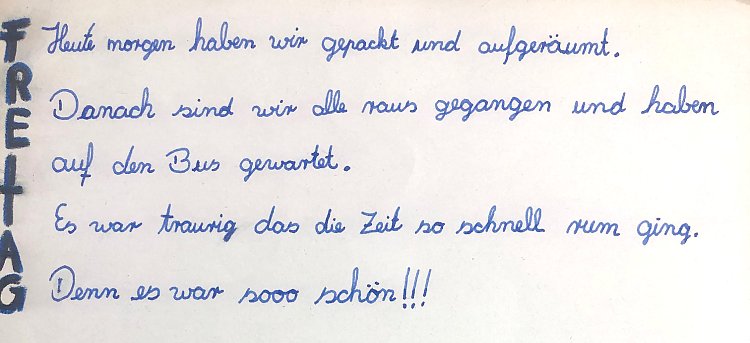 FREITAG
Heute morgen haben wir gepackt und aufgeräumt.
Danach sind wir alle raus gegangen und haben
auf den Bus gewartet.
Es war traurig das die Zeit so schnell rum ging.
Denn es war sooo schön!!!